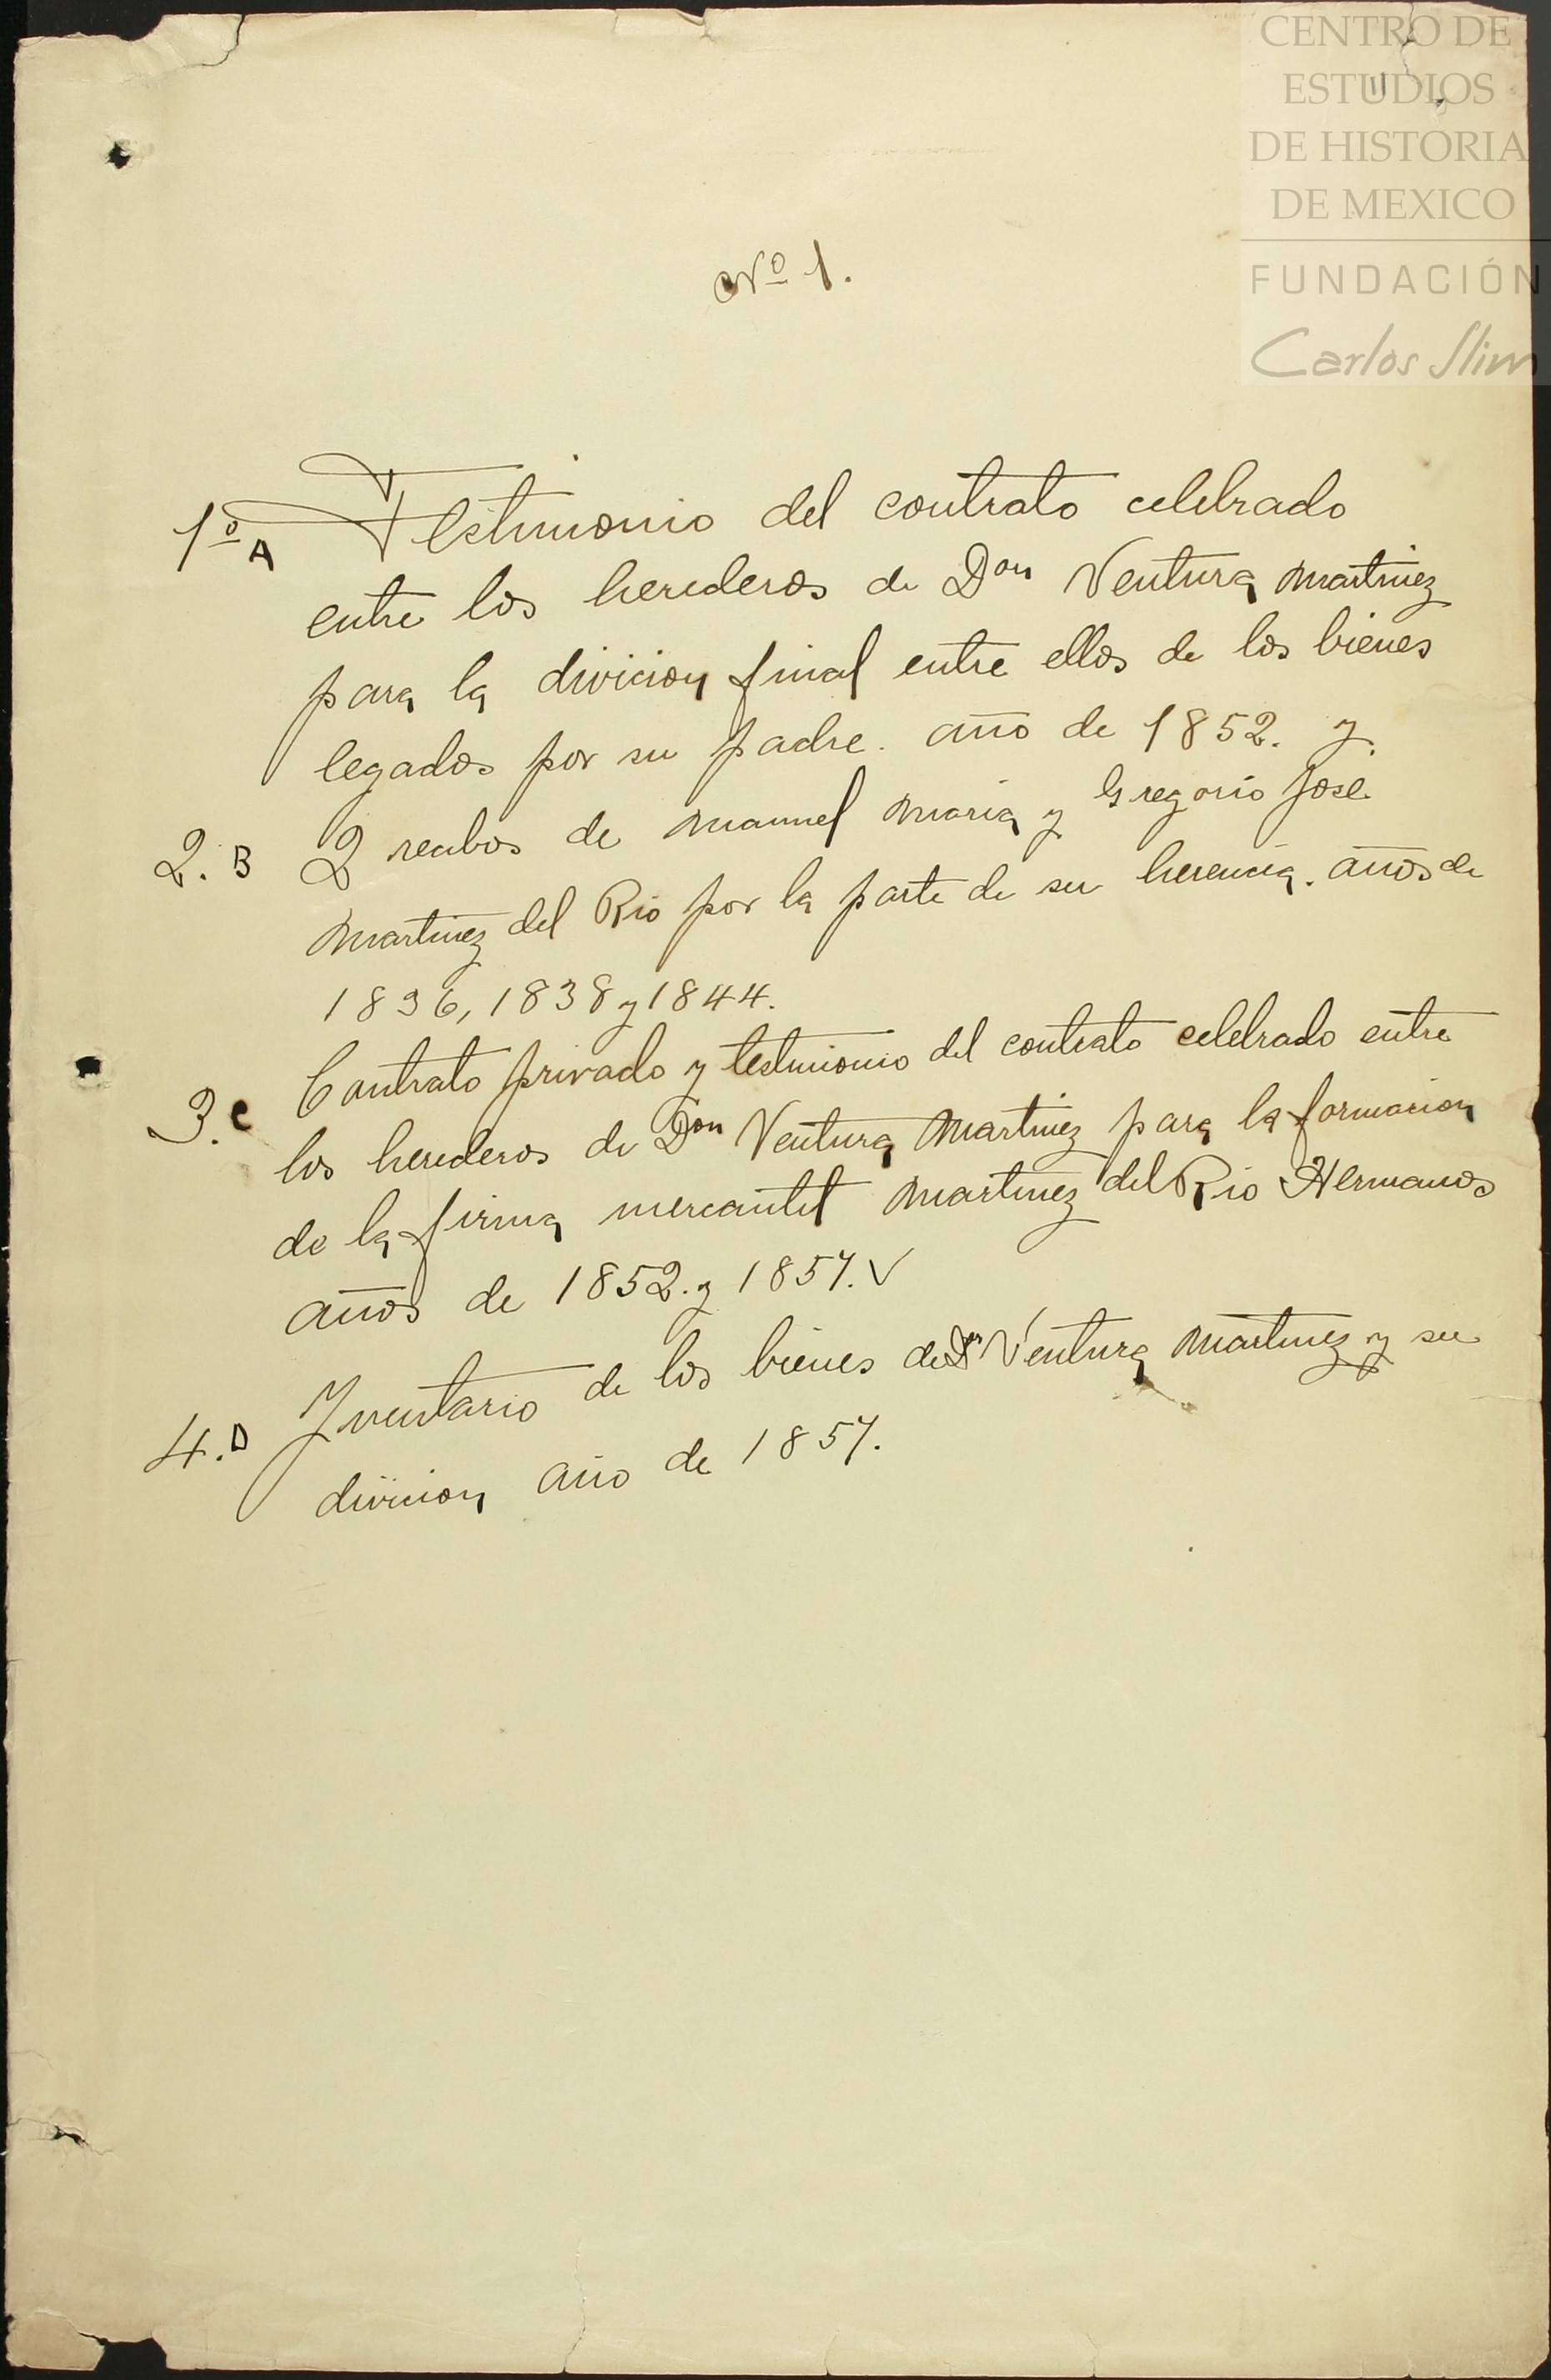 CENTRO DE
ESTUDIOS
DE HISTORIA
DE MEXICO
FUNDACIÓN
Carlos Slim
Nº 1.
1º A Testimonio del contrato celebrado
entre los herederos de Don Ventura Martinez
para la divicion final entre ellos de los bienes
legados por su padre. año de 1852. y.
2. B 2 recibos de Manuel Maria y Gregorio José
Martinez del Rio por la parte de su herencia. años de
1836, 1838 y 1844.
3. C Contrato privado y testimonio del contrato celebrado entre
los herederos de Don Ventura Martinez para la formacion
de la firma mercantil Martinez del Rio Hermanos
años de 1852. y 1857. V
4. D Inventario de los bienes de Dn Ventura Martinez y su
divicion año de 1857.